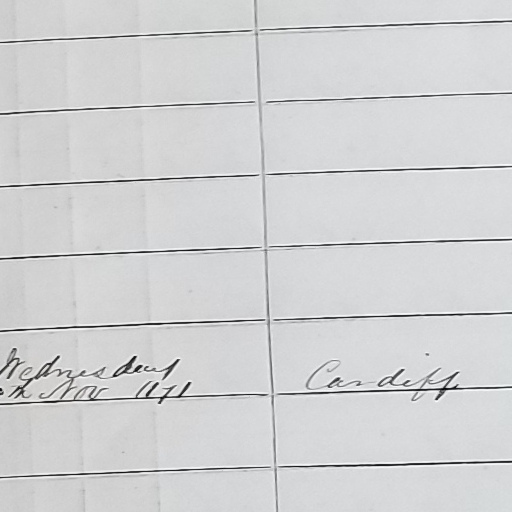 Wednesday
th Nov 1871
Cardiff